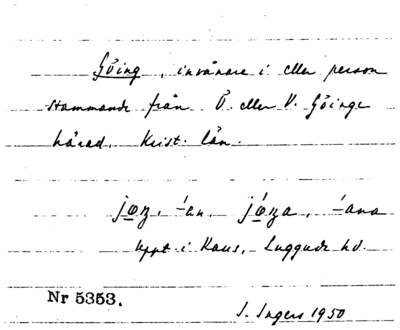 Göing, invånare i eller person
stammande från Ö. eller V. Göinge
härad, Krist. län.
jøŋ, -́an, jǿŋa, -́ana
Uppt. i Kaus, Luggude hd.
Nr 5353.
I. Ingers 1950